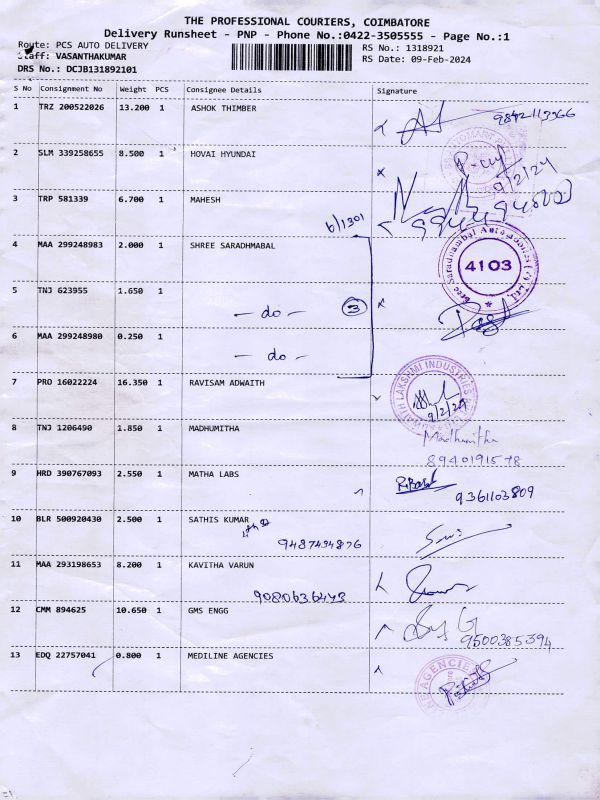 THE PROFESSIONAL COURIERS, COIMBATORE
Delivery Runsheet - PNP - Phone No.:0422-3505555 - Page No.:1
Route: PCS AUTO DELIVERY RS No.: 1318921
Staff: VASANTHAKUMAR RS Date: 09-Feb-2024
DRS No.: DCJB131892101
S No Consignment No Weight PCS Consignee Details Signature
1 TRZ 200522026 13.200 1 ASHOK THIMBER
2 SLM 339258655 8.500 1 HOVAI HYUNDAI
9/2/24
3 TRP 581339 6.700 1 MAHESH
6/1301
4 MAA 299248983 2.000 1 SHREE SARADHMABAL
Sree Saradhambal Autopoints (P) Ltd. 4103
5 TNJ 623955 1.650 1
- do - 3
6 MAA 299248980 0.250 1
- do -
7 PRO 16022224 16.350 1 RAVISAM ADWAITH
LAKSHMI INDUSTRIES
9/2/24
8 TNJ 1206490 1.850 1 MADHUMITHA Madhumitha
8940191578
9 HRD 390767093 2.550 1 MATHA LABS
9361103809
10 BLR 500920430 2.500 1 SATHIS KUMAR
9487434876
11 MAA 293198653 8.200 1 KAVITHA VARUN
9080636443
12 CMM 894625 10.650 1 GMS ENGG
9500385394
13 EDQ 22757041 0.800 1 MEDILINE AGENCIES
AGENCIES